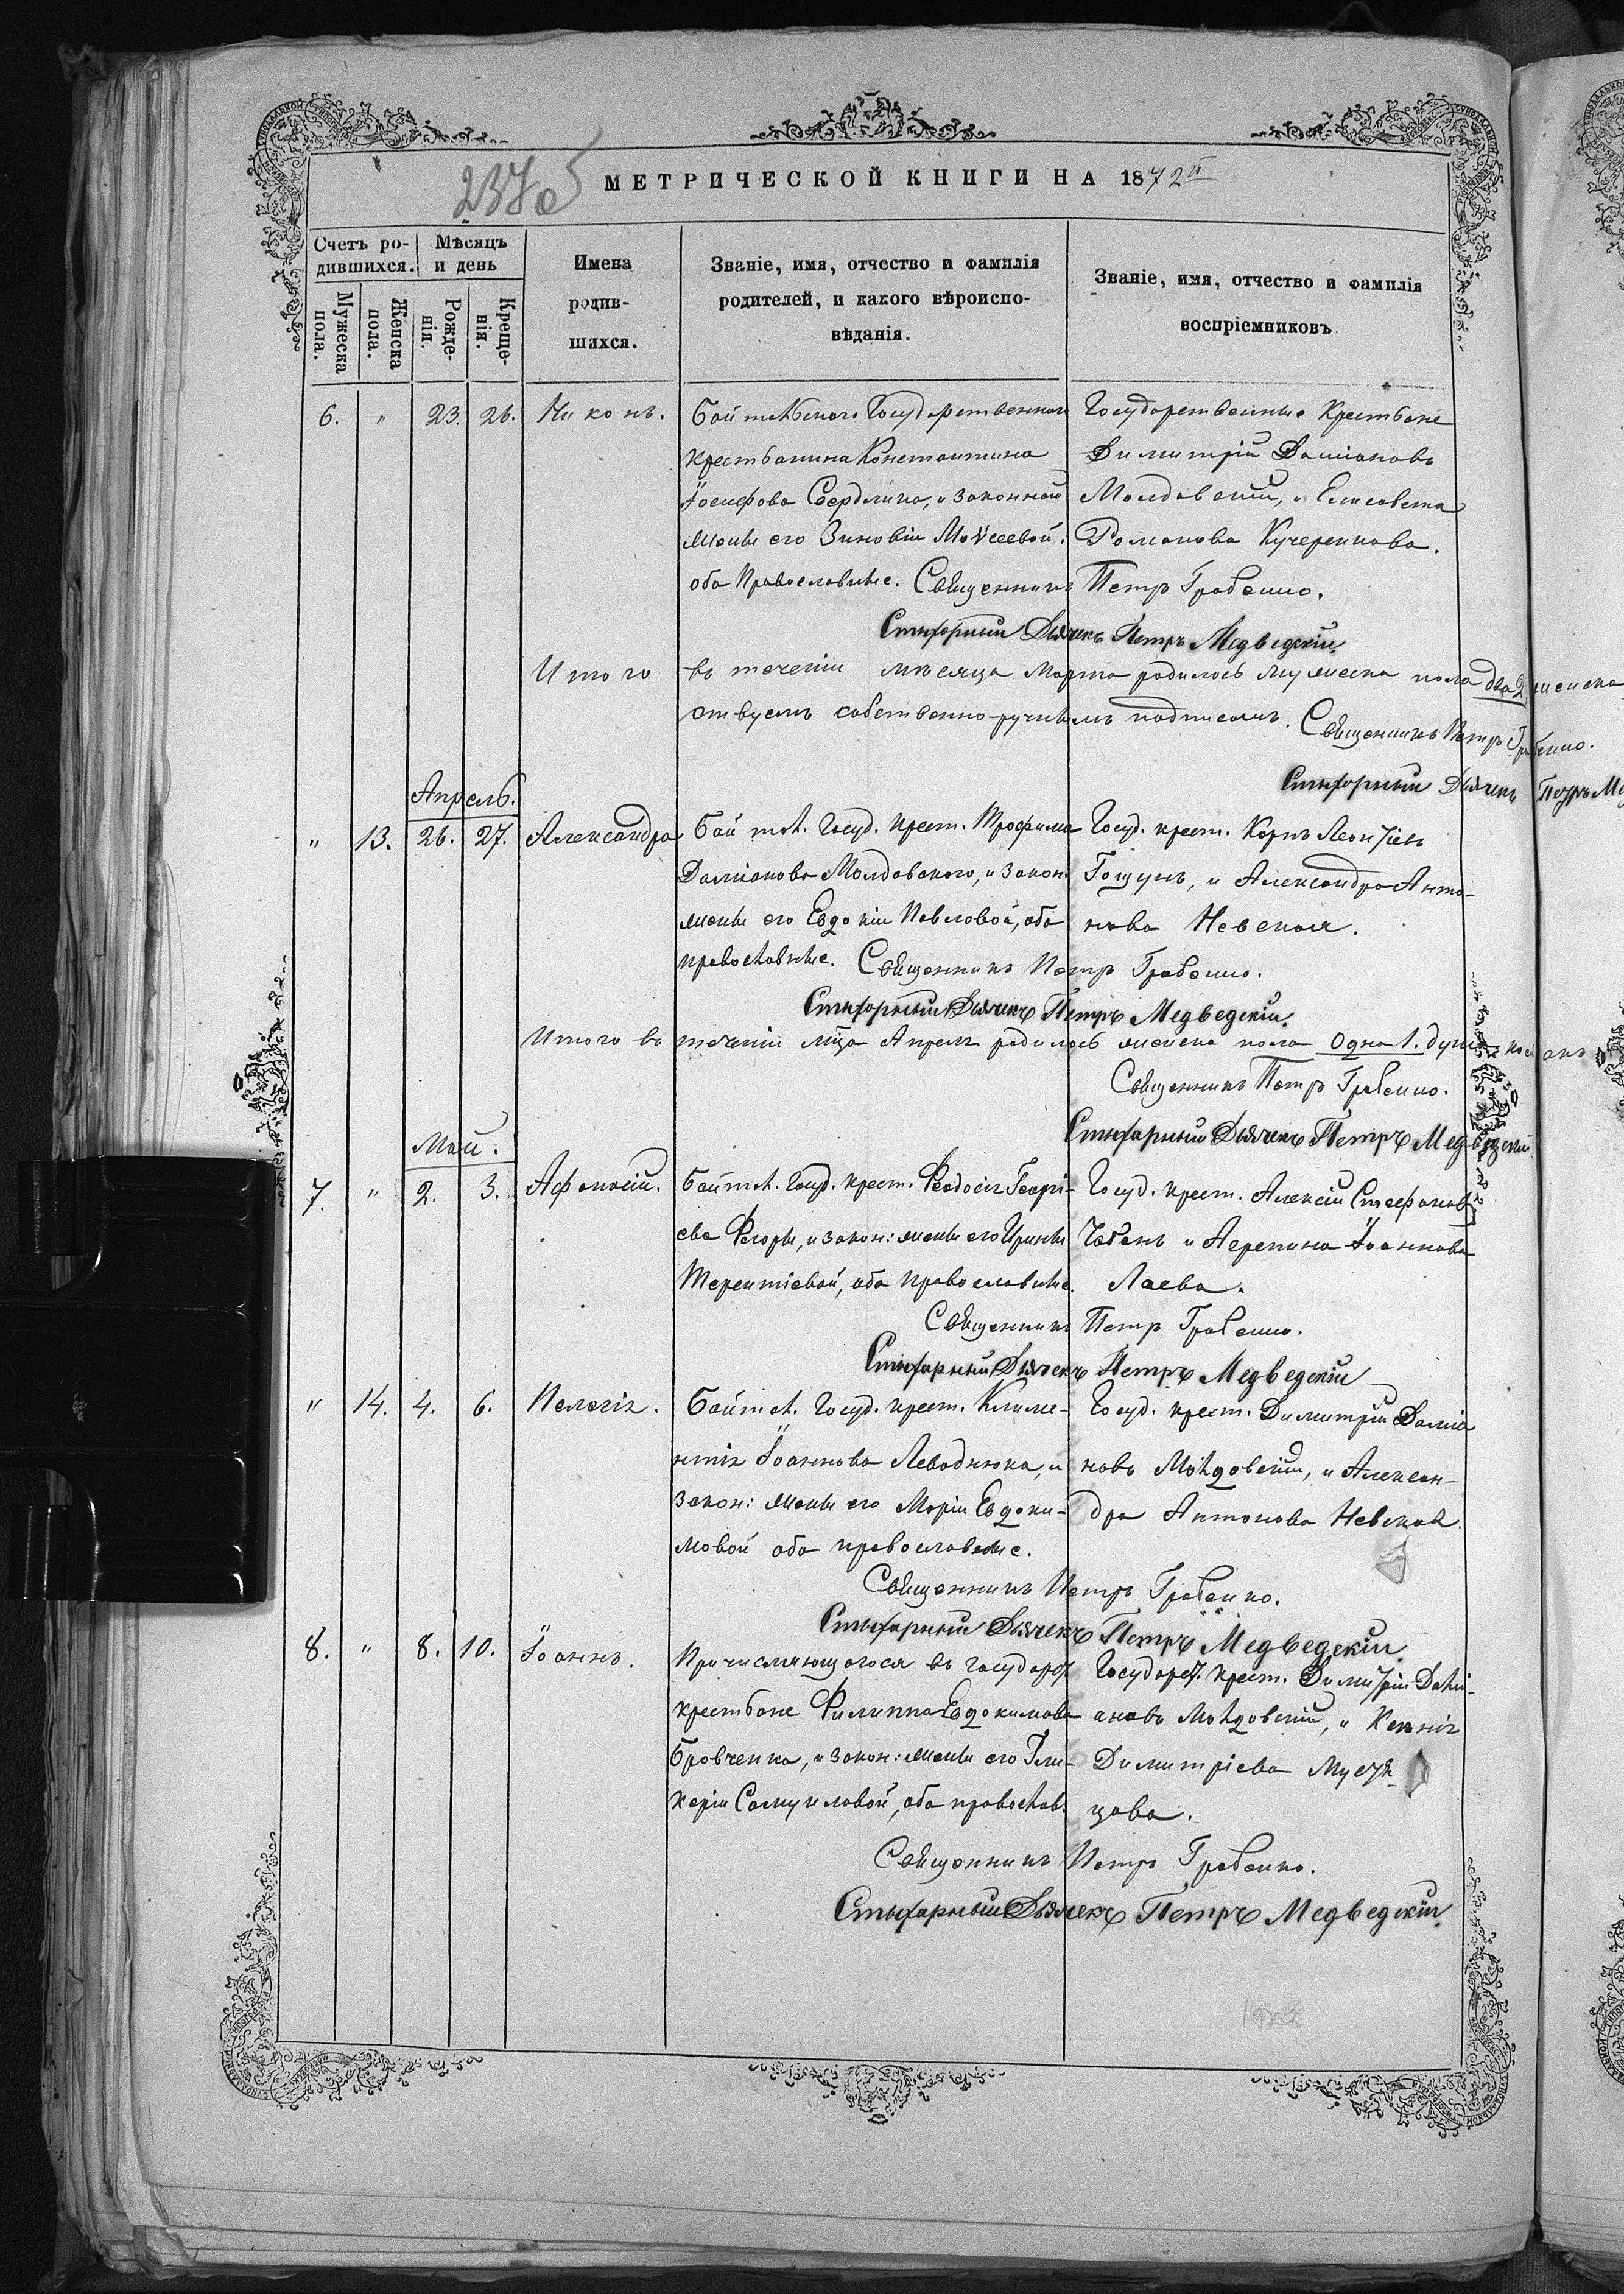 МЕТРИЧЕСКОЙ КНИГИ НА 1872й
Счетъ ро-
дившихся.
Мѣсяцъ
и день
Мужеска пола.
Женска пола.
Рожде-
нія.
Креще-
нія.
Имена
родив-
шихся.
Званіе, имя, отчество и фамилія
родителей, и какого вѣроиспо-
вѣданія.
Званіе, имя, отчество и фамилія
воспріемниковъ
6. " 23. 26. Никонъ.
Государственнаго
крестьянина Константина
Іосифова Свердлика, и законной
жены его Зиновіи Моѵсеевой.
оба Православные.
Государственные Крестьяне
Димитрій Даміановъ
Молдовскій, и Елисавета
Романова Кучеренкова.
Священникъ Петръ Гребенко.
Стихарный Дьячекъ Петръ Медведскій.
Итого въ теченіи мѣсяца Марта родилось мужеска пола два 2 женска
собственно-ручнымъ подписомъ. Священникъ Петръ Гребенко.
Стихарный Дьячекъ Петръ Ме
Апрель.
" 13. 26. 27. Александра
Госуд. крест. Трофима
Даміанова Молдовского, и закон.
жены его Евдокіи Павловой, оба
православные.
Госуд. крест. Леонтіевъ
и Александра Анто-
нова Невская.
Священникъ Петръ Гребенко.
Стихарный Дьячекъ Петръ Медведскій.
Итого въ теченіи мца Апреля родилось женска пола Одна 1. душа
Священникъ Петръ Гребенко.
Стихарный Дьячекъ Петръ Медведскій
Май.
7. " 2. 3. Афанасій.
Госуд. крест. Феодосія Георгі-
ева и закон: жены его Ирины
Терентіевой, оба православные.
Госуд. крест. Алексій Стефановъ
Чабанъ и Іоаннова
Лаева.
Священникъ Петръ Гребенко.
Стихарный Дьячекъ Петръ Медведскій
" 14. 4. 6. Пелагія.
Госуд. крест. Климе-
нтія Іоаннова Леводнюка, и
закон: жены его Маріи Евдоки-
мовой оба православные.
Госуд. крест. Димитрій Даміа
новъ Молдовскій, и Алексан-
дра Антонова Невская.
Священникъ Петръ Гребенко.
Стихарный Дьячекъ Петръ Медведскій.
8. " 8. 10. Іоаннъ.
Причисляющагося въ государст.
крестьяне Филиппа Евдокимова
Бровченка, и закон: жены его Гли-
керіи Самуиловой, оба православ.
Государст. крест. Димитрій Дамі-
ановъ Молдовскій, и Ксенія
Димитріева
цова.
Священникъ Петръ Гребенко.
Стихарный Дьячекъ Петръ Медведскій.